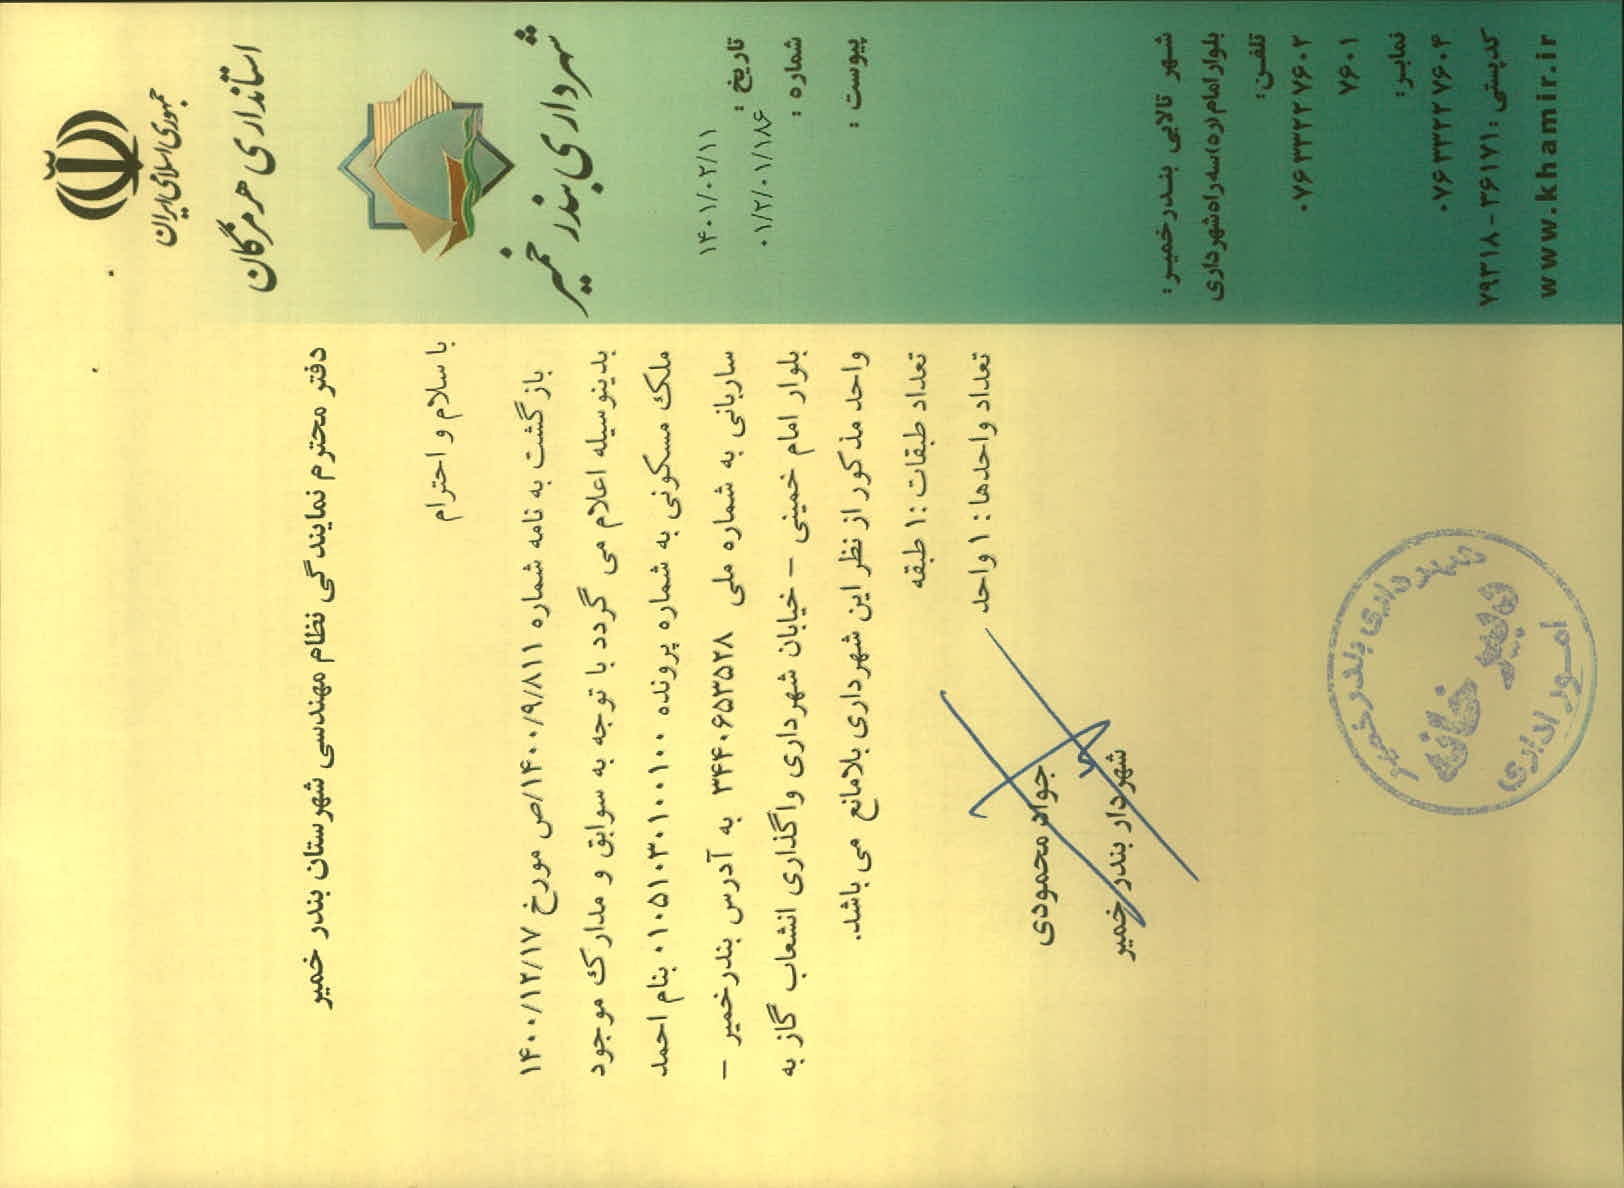 جمهوری اسلامی ایران
استانداری هرمزگان
شهرداری بندر خمیر
تاریخ : ۱۴۰۱/۰۲/۱۱
شماره : ۰۱/۲/۰۱/۱۸۶
پیوست :
دفتر محترم نمایندگی نظام مهندسی شهرستان بندر خمیر
با سلام و احترام
بازگشت به نامه شماره ۱۴۰۰/۹/۸۱۱/ص مورخ ۱۴۰۰/۱۲/۱۷
بدینوسیله اعلام می گردد با توجه به سوابق و مدارک موجود
ملک مسکونی به شماره پرونده ۰۱۰۵۱۰۳۰۱۰۰۱۰۰ بنام احمد
ساربانی به شماره ملی ۳۴۴۰۶۵۳۵۲۸ به آدرس بندرخمیر –
بلوار امام خمینی – خیابان شهرداری واگذاری انشعاب گاز به
واحد مذکور از نظر این شهرداری بلامانع می باشد.
تعداد طبقات :۱ طبقه
تعداد واحدها : ۱ واحد
جواد محمودی
شهردار بندر خمیر
شهرداری بندر خمیر
دبیر خانه
امور اداری
شهر تالابی بندرخمیر:
بلوار امام(ره)سه راه شهرداری
تلفن:
۰۷۶۳۳۳۲۷۶۰۲
۷۶۰۱
نمابر:
۰۷۶۳۳۳۲۷۶۰۴
کدپستی :۳۶۱۷۱ - ۷۹۳۱۸
www.khamir.ir